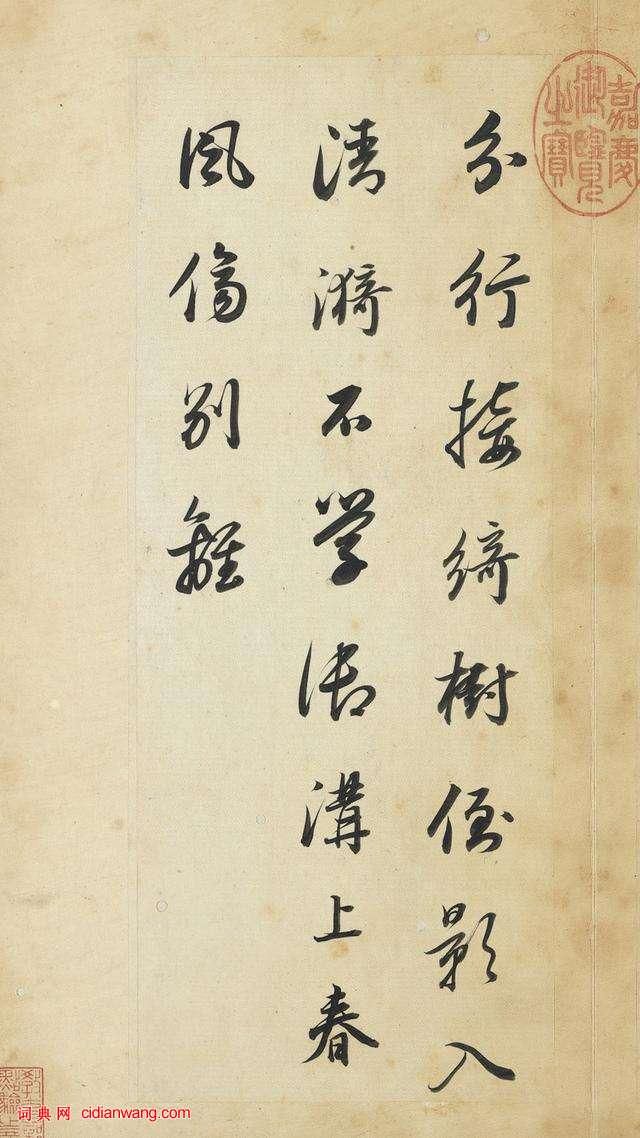 嘉慶御覽之寶
分行接綺樹倒影入
清漪不學御溝上春
風傷別離
词典网 cidianwang.com